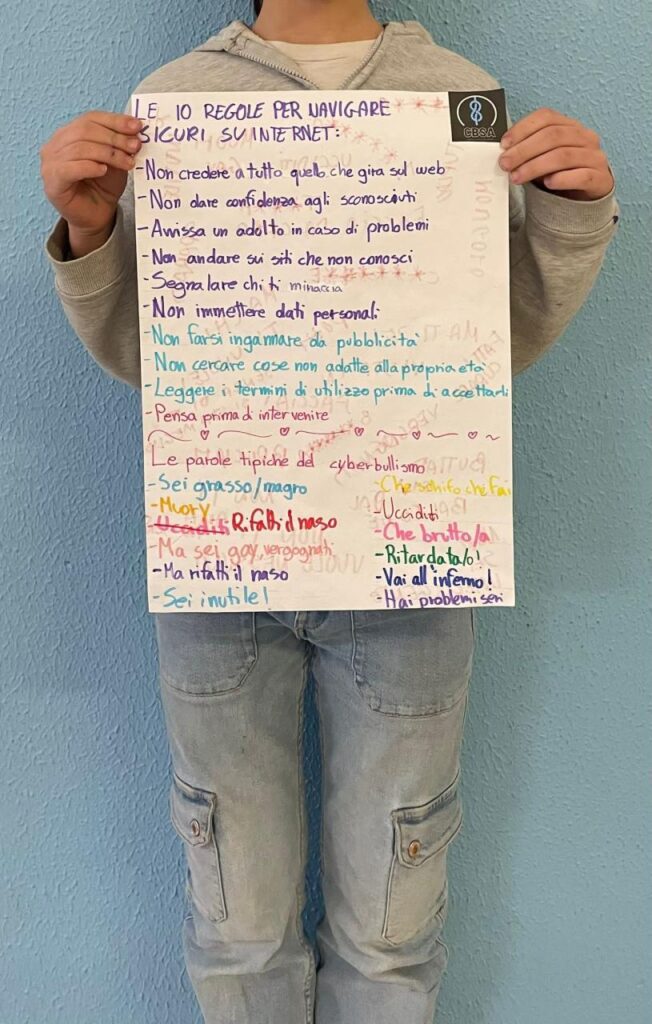 LE 10 REGOLE PER NAVIGARE
SICURI SU INTERNET:
CBSA
-Non credere a tutto quello che gira sul web
-Non dare confidenza agli sconosciuti
-Avvisa un adulto in caso di problemi
-Non andare sui siti che non conosci
-Segnalare chi ti minaccia
-Non immettere dati personali
-Non farsi ingannare da pubblicità
-Non cercare cose non adatte alla propria età
-Leggere i termini di utilizzo prima di accettarli
-Pensa prima di intervenire
Le parole tipiche del cyberbullismo
-Sei grasso/magro
-Muory
-Uccidit Rifatti il naso
-Ma sei gay, vergognati
-Ma rifatti il naso
-Sei inutile!
-Che schifo che fai
-Ucciditi
-Che brutto/a
-Ritardata/o!
-Vai all'inferno!
-Hai problemi seri